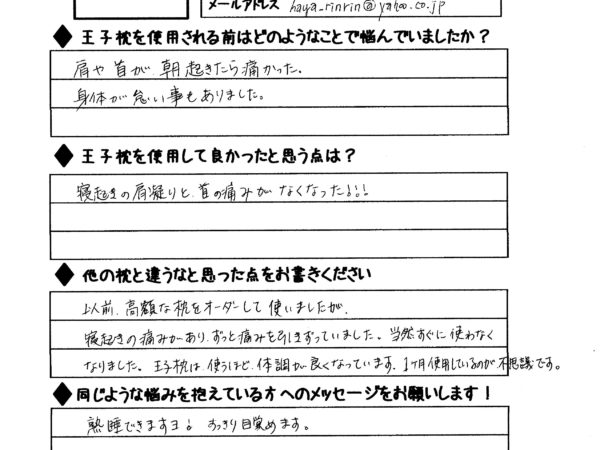 メールアドレス haya_rinrin@yahoo.co.jp
◆ 王子枕を使用される前はどのようなことで悩んでいましたか？
肩や首が朝起きたら痛かった。
身体が怠い事もありました。
◆ 王子枕を使用して良かったと思う点は？
寝起きの肩凝りと、首の痛みがなくなった!!!
◆ 他の枕と違うなと思った点をお書きください
以前、高額な枕をオーダーして使いましたが、
寝起きの痛みがあり、ずっと痛みを引きずっていました。当然すぐに使わなく
なりました。王子枕は、使うほど、体調が良くなっています。1ヶ月使用しているのが不思議です。
◆ 同じような悩みを抱えている方へのメッセージをお願いします！
熟睡できますヨ! すっきり目覚めます。